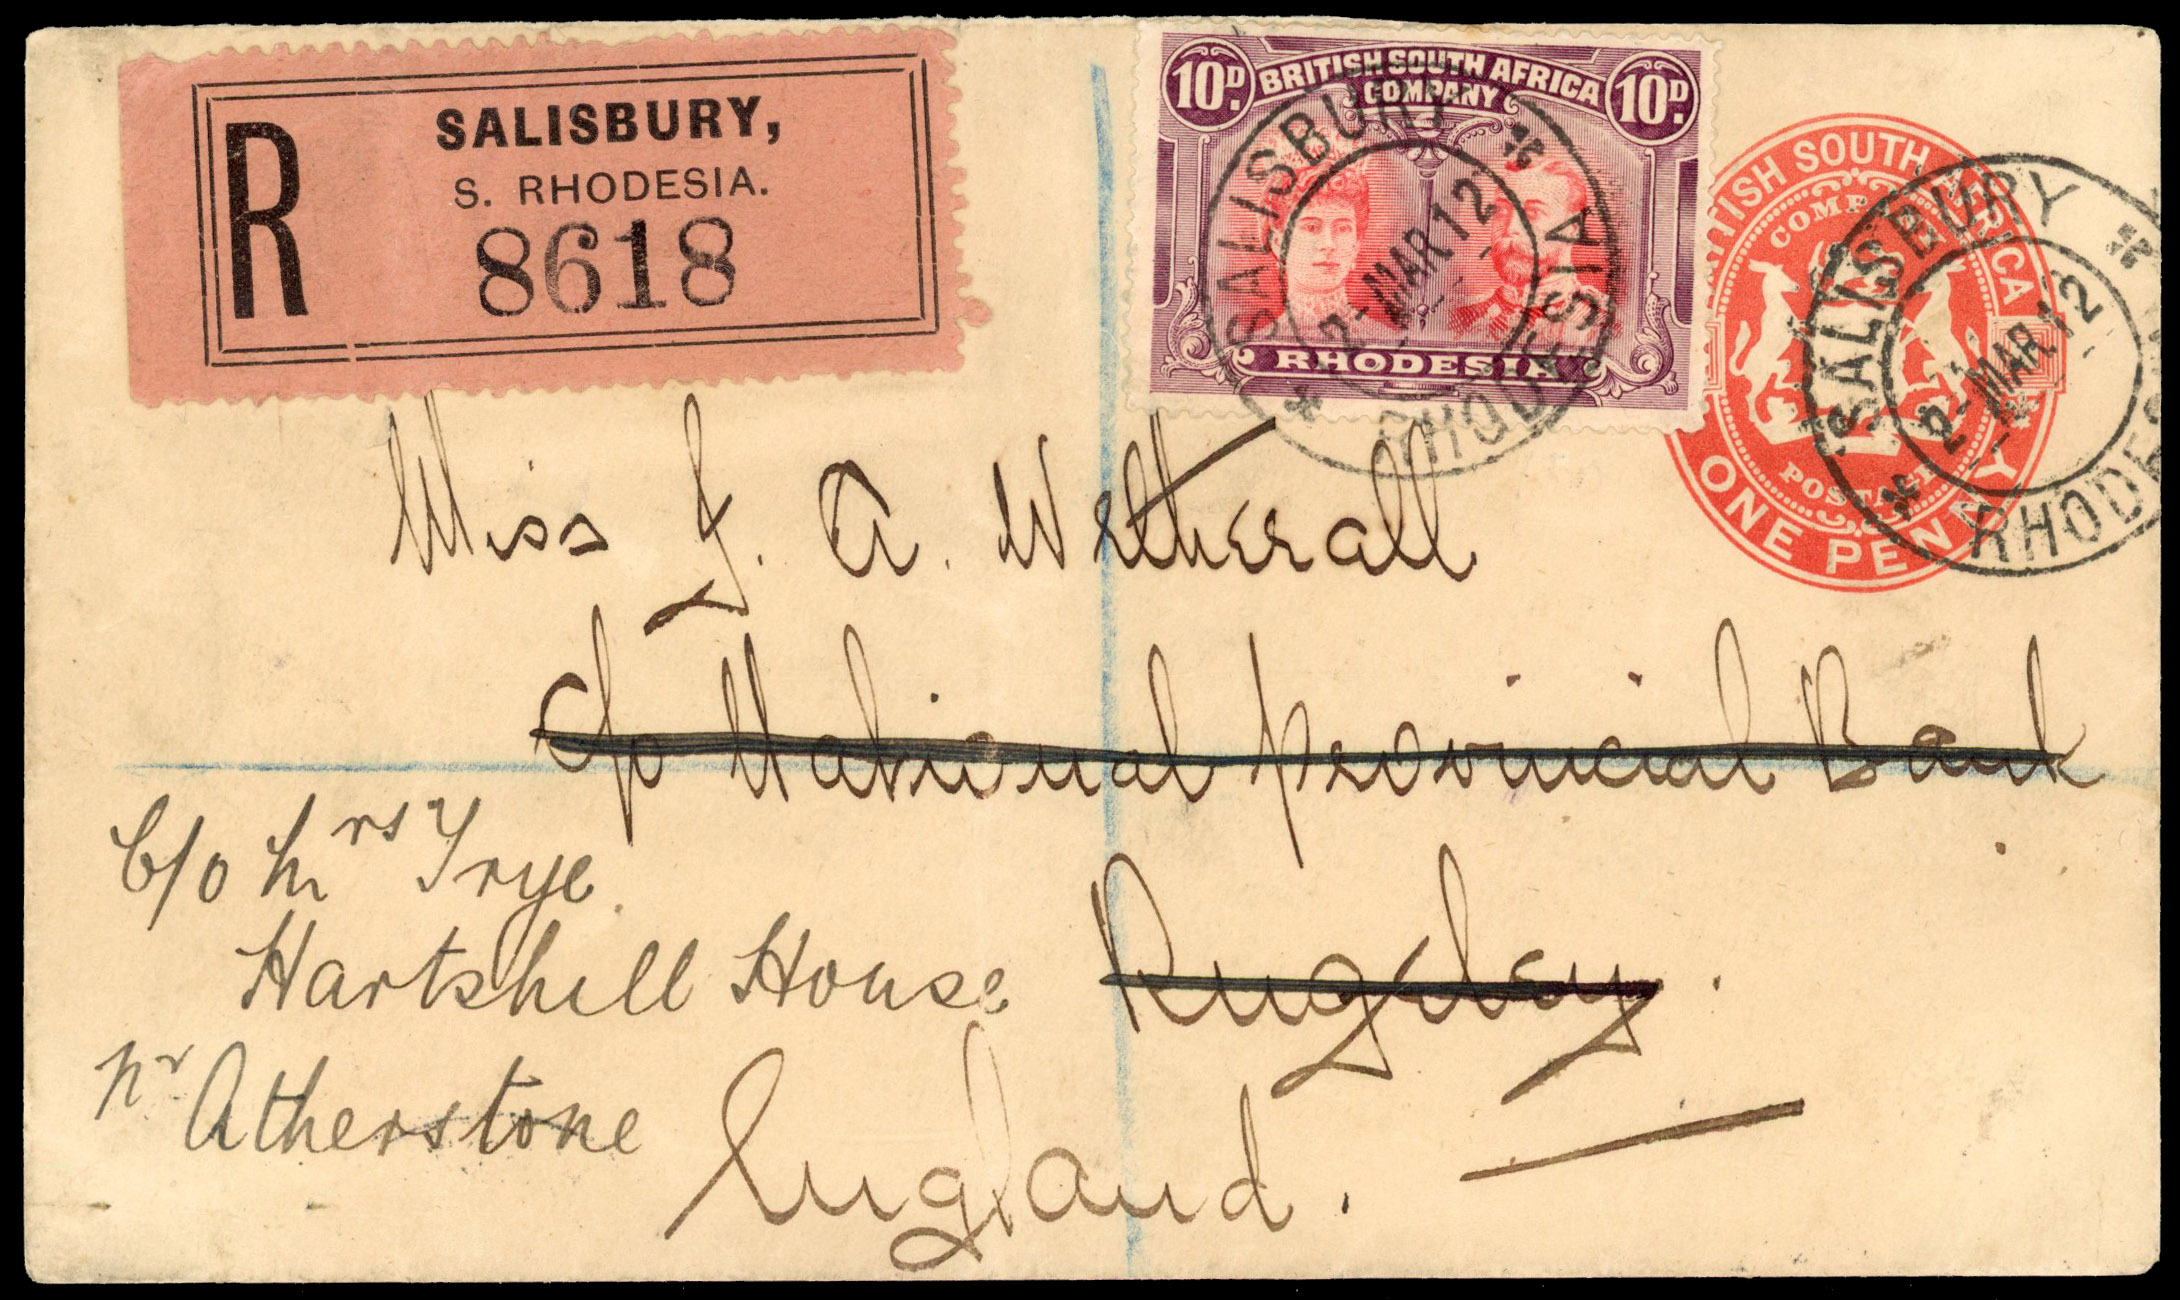 R
SALISBURY,
S. RHODESIA.
8618
10D. BRITISH SOUTH AFRICA 10D.
COMPANY
RHODESIA
SALISBURY
2-MAR 12
RHODESIA
BRITISH SOUTH AFRICA
COMPANY
POSTAGE
ONE PENNY
SALISBURY
2-MAR 12
RHODESIA
Miss J. A. Wetherall
C/o National Provincial Bank
Rugeley.
England.
C/o Mrs Trye
Hartshill House
nr Atherstone